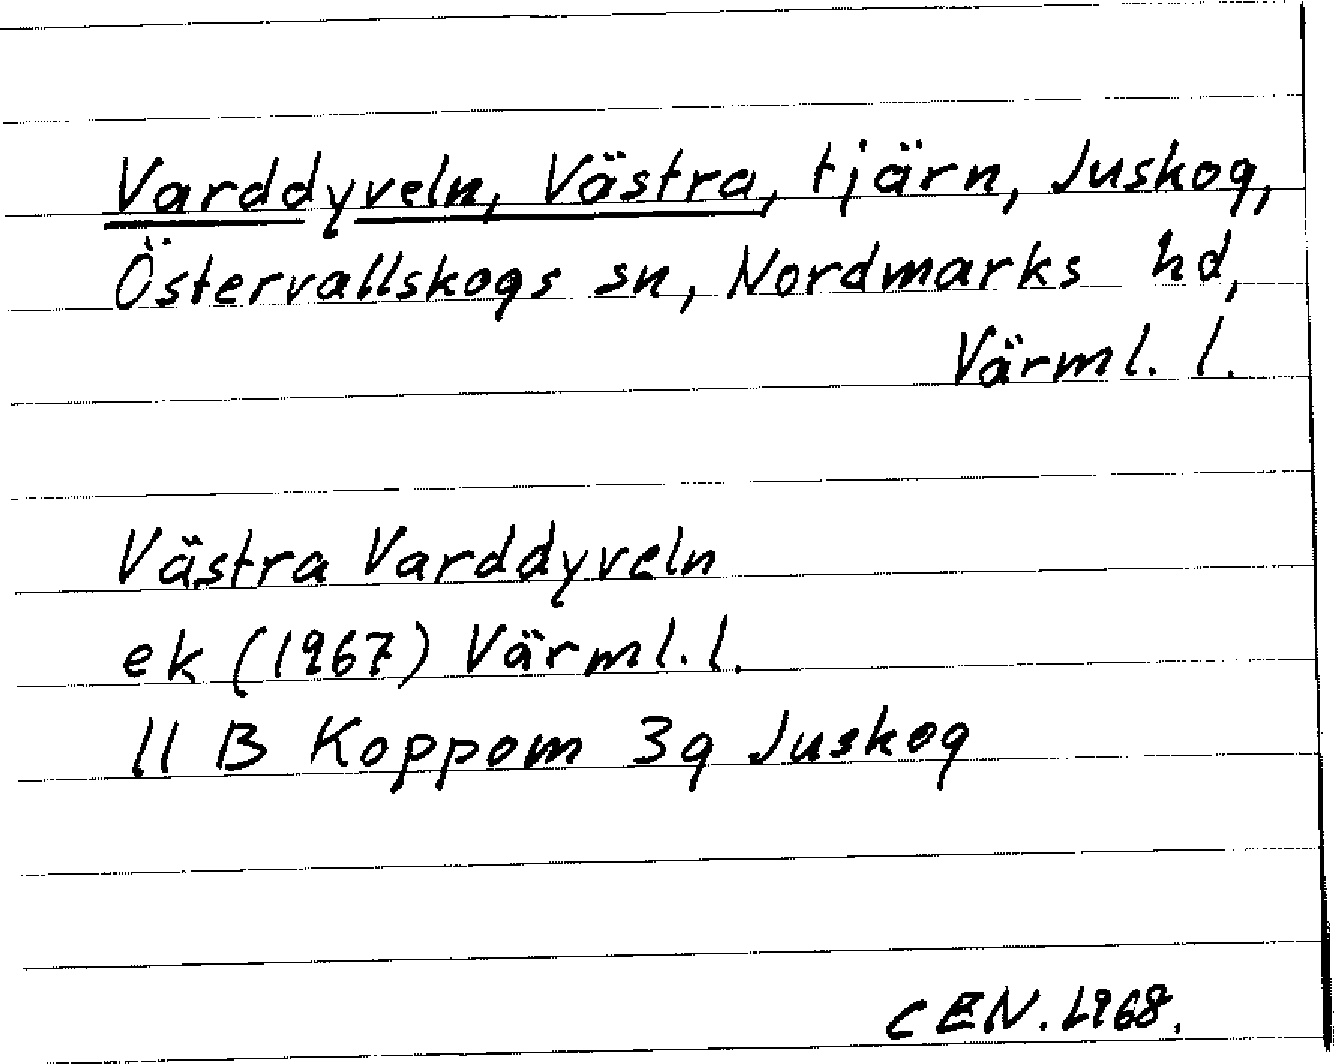 Varddyveln, Västra, tjärn, Juskog,
Östervallskogs sn, Nordmarks hd,
Värml. l.
Västra Varddyveln
ek (1967) Värml. l.
11 B Koppom 3g Juskog
CEN. 1968.